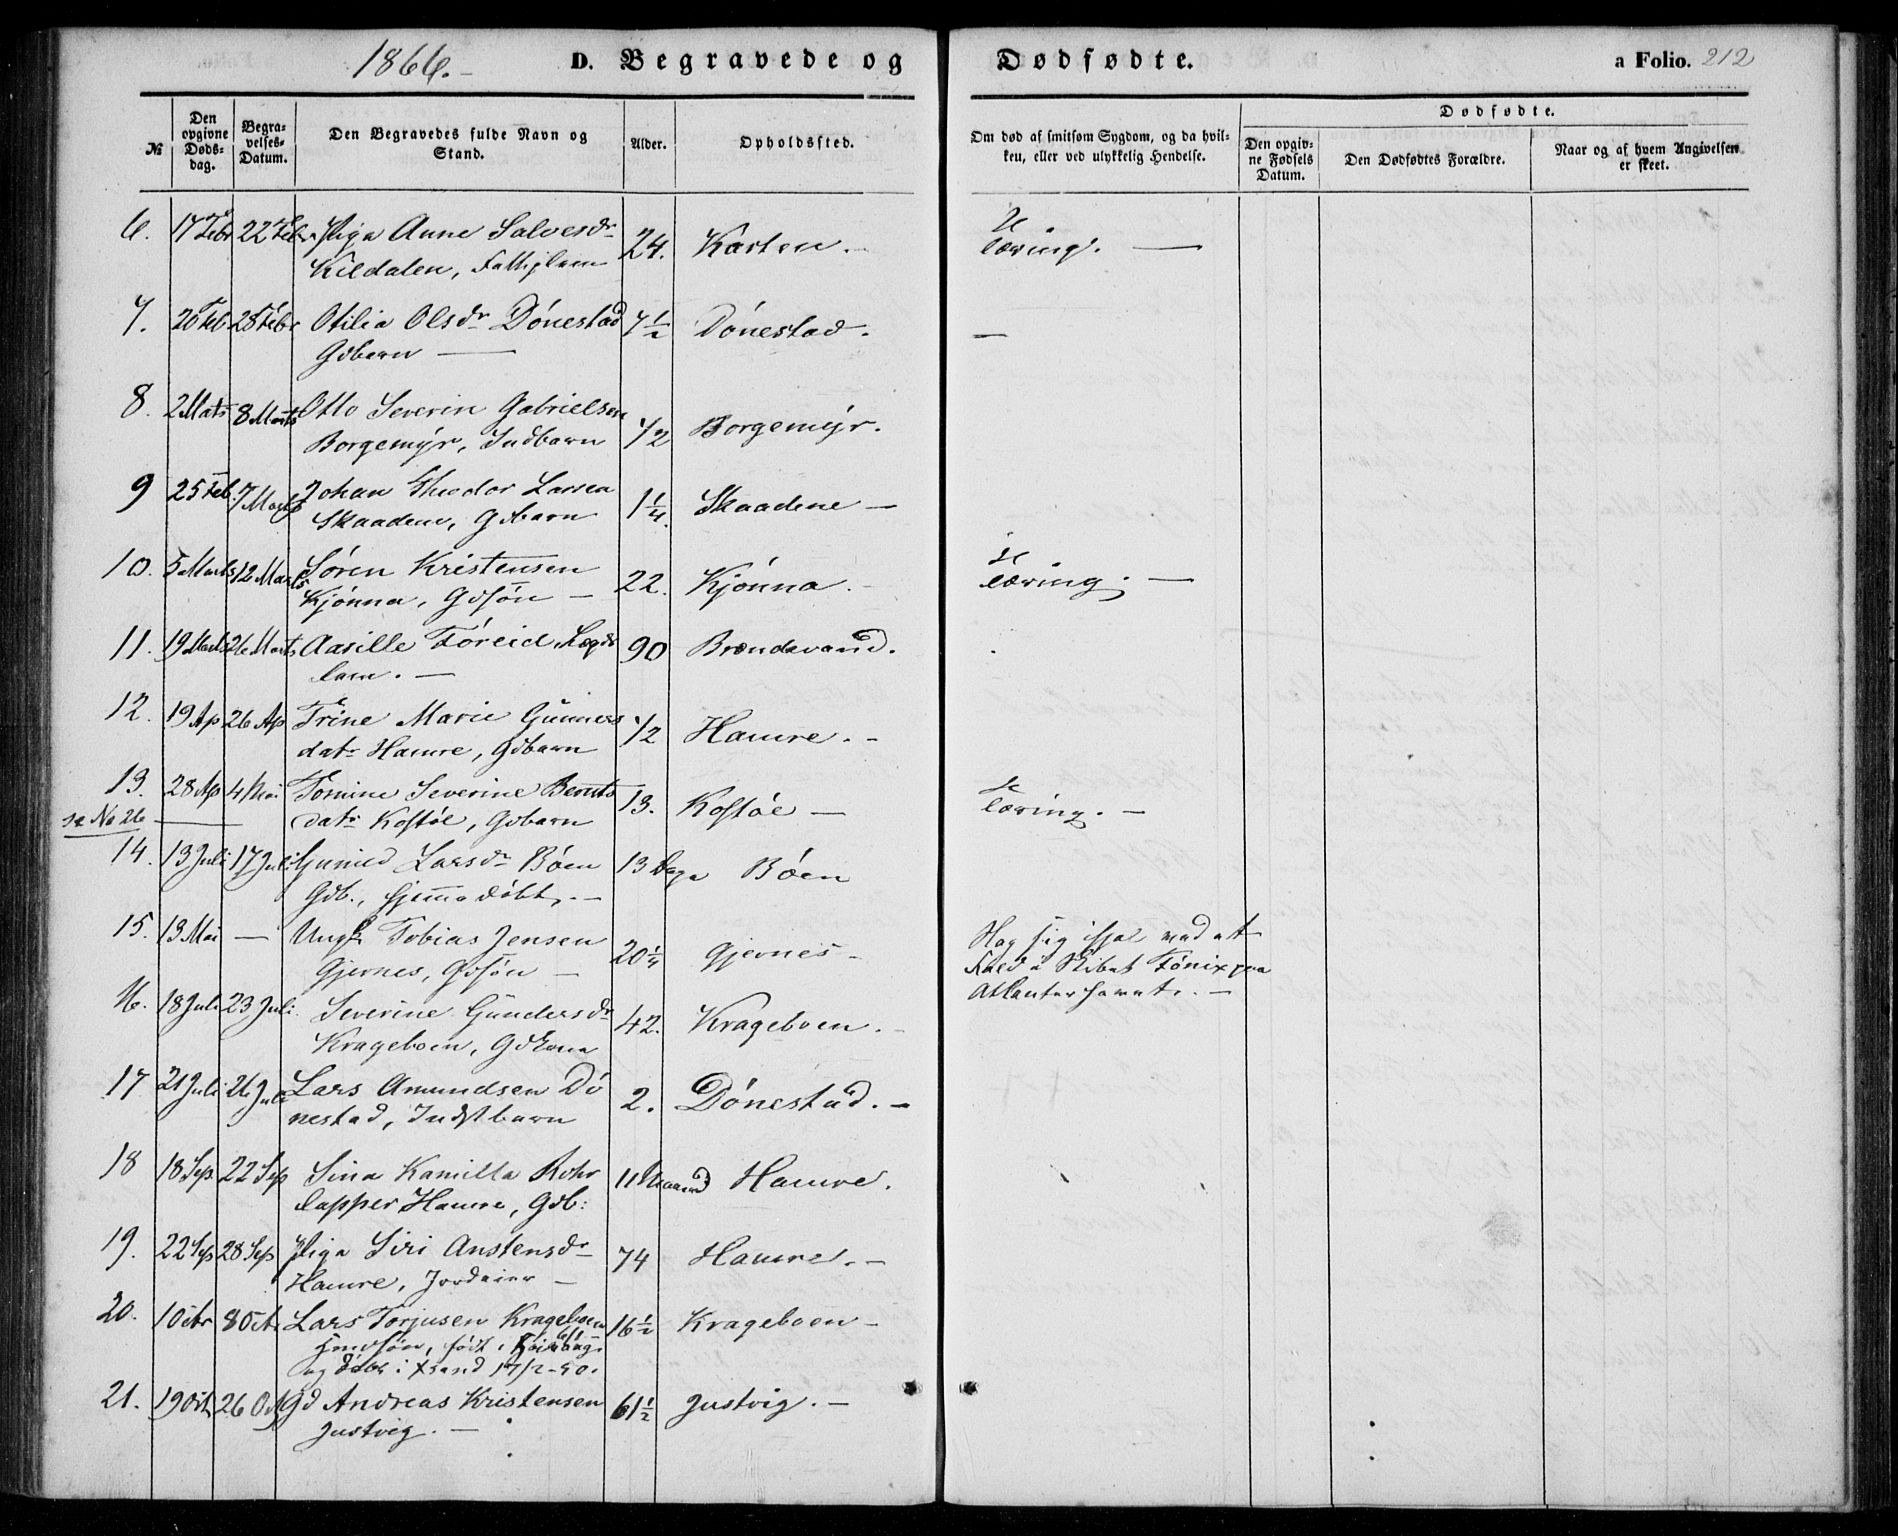 1866.-
D. Begravede og Dødfødte. a Folio. 212
№
Den opgivne Døds-dag.
Begra-velses-Datum.
Den Begravedes fulde Navn og Stand.
Alder.
Opholdssted.
Om død af smitsom Sygdom, og da hvil-
ken, eller ved ulykkelig Hendelse.
Dødfødte.
Den opgiv-ne Fødsels Datum.
Den Dødfødtes Forældre.
Naar og af hvem Angivelsen er skeet.
6. 17 Febr 22 Febr Pige Anne Salvesdr 24. Karten.
Kildalen, Fattiglem
Tæring. —
7. 26 Feb 28 Febr Otilia Olsdr Dönestad 7½ Dönestad. —
Gdbarn —
8. 2 Marts 8 Marts Otto Severin Gabrielsen ½ Borgemyr.
Borgemyr, Indbarn
9 25 Feb. 7 Marts Johan Theodor Larsen 1¼. Skaadene —
Skaadene, Gdbarn
10. 5 Marts 12 Marts Sören Kristensen 22. Kjönna. -
Kjönna, Gdsön —
Tæring. —
11. 19 Marts 26 Marts Aasille Töreid, Lægds 90 Brændevand.
lem. —
12. 19 Ap 26 Ap Trine Marie Gunners ½ Hamre. -
datr Hamre, Gdbarn
13. 28 Ap 4 Mai Tomine Severine Bernts 13. Kostöl —
datr Kostöl, Gdbarn
Tæring. —
se No 26
14. 13 Juli 17 Juli Gunild Larsdr Böen 13 Dage Böen
Gdb., hjemmedöbt. —
15. 13 Mai — Ungk Tobias Jensen 20¼ Gjernes -
Gjernes, Gdsön —
Slog sig ihjel ved et
Fald i Skibet Fönix paa
Atlanterhavet. —
16. 18 Juli 23 Juli. Severine Gundersdr 42. Krageboen. -
Krageboen, Gdkone
17 21 Juli 26 Juli Lars Amundsen Dö 2. Dönestad. —
nestad, Indstbarn
18 18 Sep. 22 Sep Sina Kamilla Rohr 11 Maaned Hamre.
lapper Hamre, Gdb:
19. 22 Sep 28 Sep Pige Siri Anstensdr 74 Hamre. —
Hamre, Jordeier —
20. 1 Octr 8 Octr Lars Torjusen Krageboen 16½ Krageboen —
födt i
og döbt i Xsand 17/2-50.
21. 19 Oct 26 Oct Gd Andreas Kristensen 61½ Justvig. —
Justvig. —